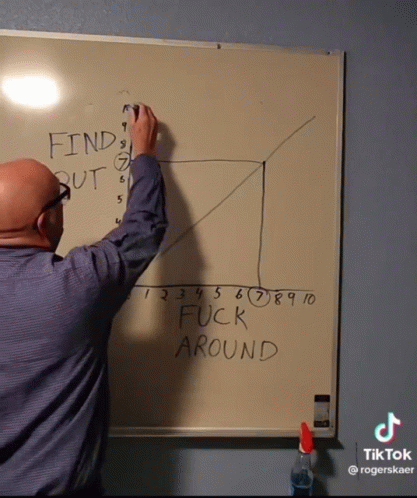 FIND
OUT
9
8
7
6
5
4
1 2 3 4 5 6 7 8 9 10
FUCK
AROUND
TikTok
@rogerskaer